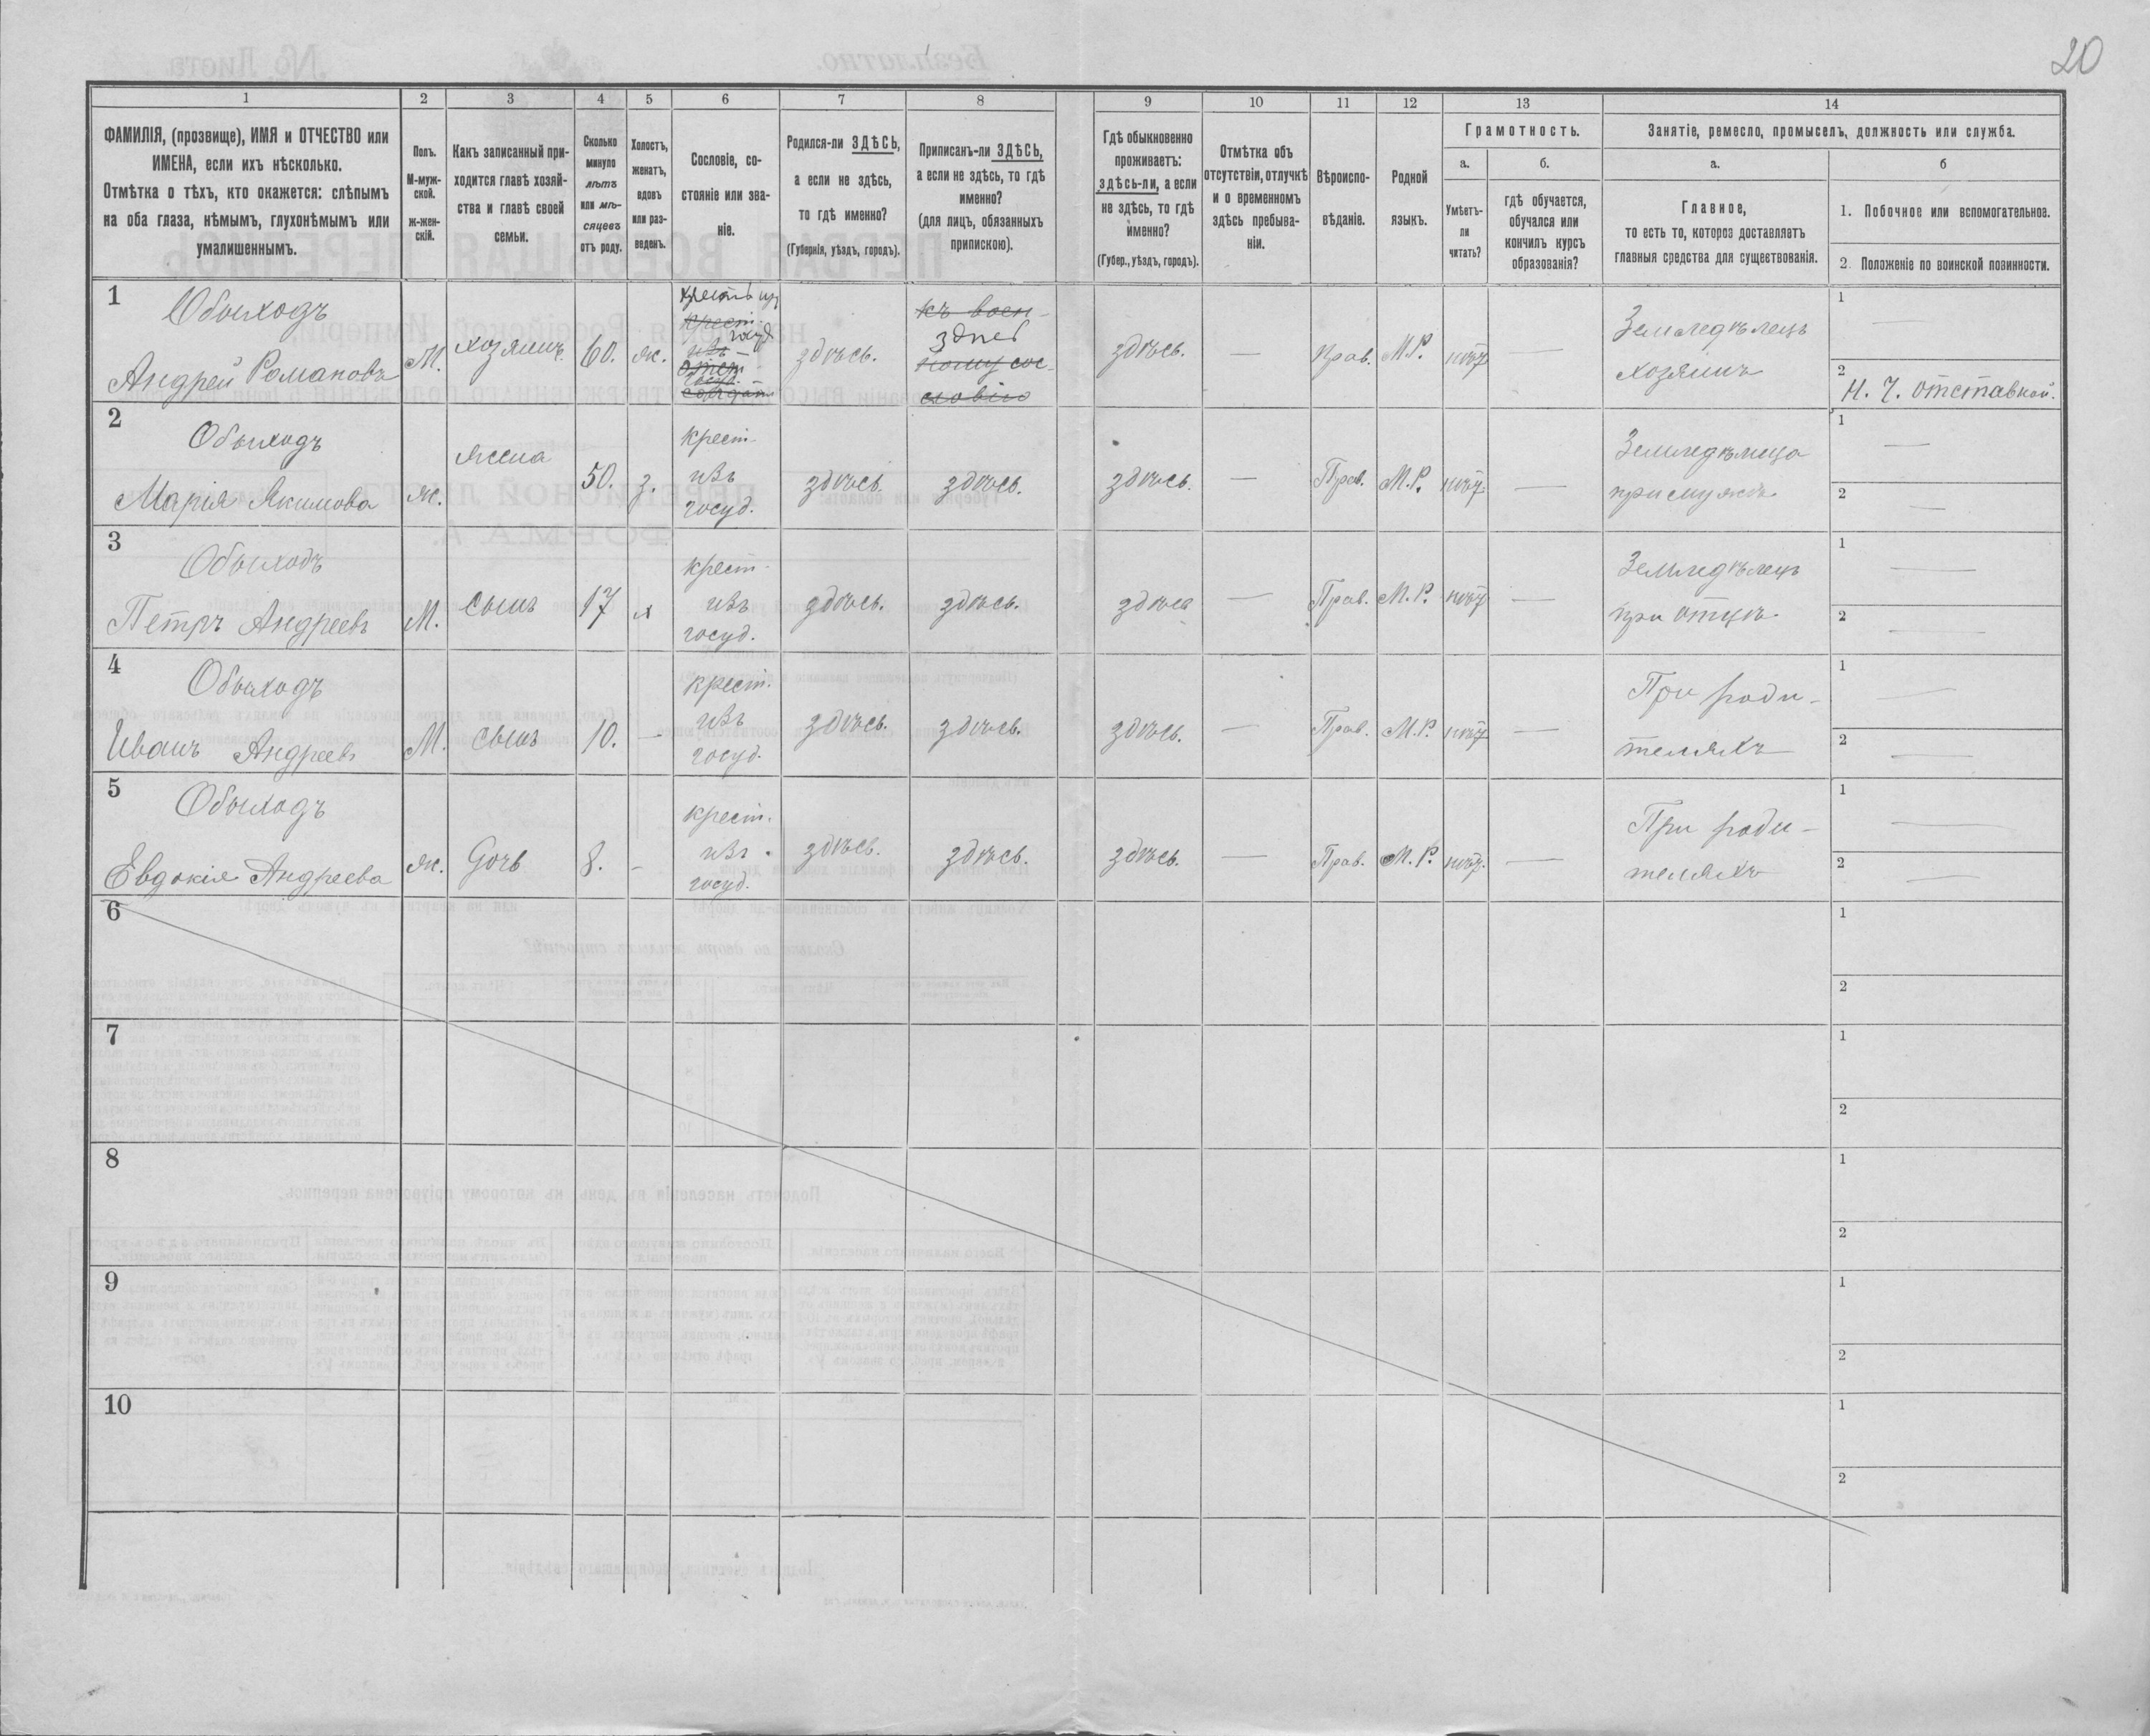 20
1 2 3 4 5 6 7 8 9 10 11 12 13 14
ФАМИЛІЯ, (прозвище), ИМЯ и ОТЧЕСТВО или
ИМЕНА, если ихъ нѣсколько.
Отмѣтка о тѣхъ, кто окажется: слѣпымъ
на оба глаза, нѣмымъ, глухонѣмымъ или
умалишеннымъ.
Полъ.
М-муж-
ской.
ж-жен-
скій.
Какъ записанный при-
ходится главѣ хозяй-
ства и главѣ своей
семьи.
Сколько
минуло
лѣтъ
или мѣ-
сяцевъ
отъ роду.
Холостъ,
женатъ,
вдовъ
или раз-
веденъ.
Сословіе, со-
стояніе или зва-
ніе.
Родился-ли ЗДѢСЬ,
а если не здѣсь,
то гдѣ именно?
(Губернія, уѣздъ, городъ).
Приписанъ-ли ЗДѢСЬ,
а если не здѣсь, то гдѣ
именно?
(для лицъ, обязанныхъ
припискою).
Гдѣ обыкновенно
проживаетъ:
здѣсь-ли, а если
не здѣсь, то гдѣ
именно?
(Губер., уѣздъ, городъ).
Отмѣтка объ
отсутствіи, отлучкѣ
и о временномъ
здѣсь пребыва-
ніи.
Вѣроиспо-
вѣданіе.
Родной
языкъ.
Грамотность.
а.
Умѣетъ-
ли
читать?
б.
гдѣ обучается,
обучался или
кончилъ курсъ
образованія?
Занятіе, ремесло, промыселъ, должность или служба.
а.
Главное,
то есть то, которое доставляетъ
главныя средства для существованія.
б
1. Побочное или вспомогательное.
2. Положеніе по воинской повинности.
1
Обыходъ
Андрей Романовъ
М.
хозяинъ
60.
ж.
крест.
изъ
здѣсь.
къ воен-
ному сос-
ловію
здѣсь.
—
Прав.
М.Р.
нѣтъ
—
Земледѣлецъ
хозяинъ
1 —
2 Н. Ч. отставной.
2
Обыходъ
Марія Якимова
ж.
жена
50.
з.
крест.
изъ
госуд.
здѣсь.
здѣсь.
здѣсь.
—
Прав.
М.Р.
нѣтъ
—
Земледѣлица
при мужѣ
1 —
2 —
3
Обыходъ
Петръ Андреевъ
М.
сынъ
17
х
крест.
изъ
госуд.
здѣсь.
здѣсь.
здѣсь
—
Прав.
М.Р.
нѣтъ
—
Земледѣлецъ
при отцѣ
1 —
2 —
4
Обыходъ
Иванъ Андреевъ
М.
сынъ
10.
—
крест.
изъ
госуд.
здѣсь.
здѣсь.
здѣсь.
—
Прав.
М.Р.
нѣтъ
—
При роди-
теляхъ
1 —
2 —
5
Обыходъ
Евдокія Андреева
ж.
дочь
8.
-
крест.
изъ
госуд.
здѣсь.
здѣсь.
здѣсь.
—
Прав.
М.Р.
нѣтъ.
—
При роди-
теляхъ
1 —
2 —
6
1
2
7
1
2
8
1
2
9
1
2
10
1
2